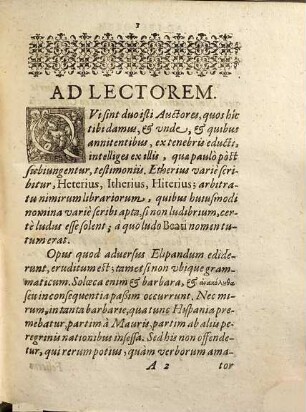 3
AD LECTOREM.
QVi sint duo isti Auctores, quos hîc
tibi damus, & vnde, & quibus
annitentibus, ex tenebris educti,
intelliges ex illis, qua paulo pòst
subiungentur, testimoniis. Etherius variè scri
bitur, Heterius, Itherius, Hiterius; arbitra
tu nimirum librariorum, quibus huiusmodi
nomina variè scribi apta, si non ludibrium, cer
tè ludus esse solent; a quo ludo Beati nomen tu
tum erat.
Opus quod adversus Elipandum edide
runt, eruditum est; tametsi non vbique gram
maticum. Solœca enim & barbara, & ἀνακόλουθα
seu inconsequentia passim occurrunt. Nec mi
rum, in tanta barbarie, qua tunc Hispania pre
mebatur, partim à Mauris, partim ab aliis pe
regrinis nationibus insessa. Sed his non offende
tur, qui rerum potius, quàm verborum ama-
A 2 tor